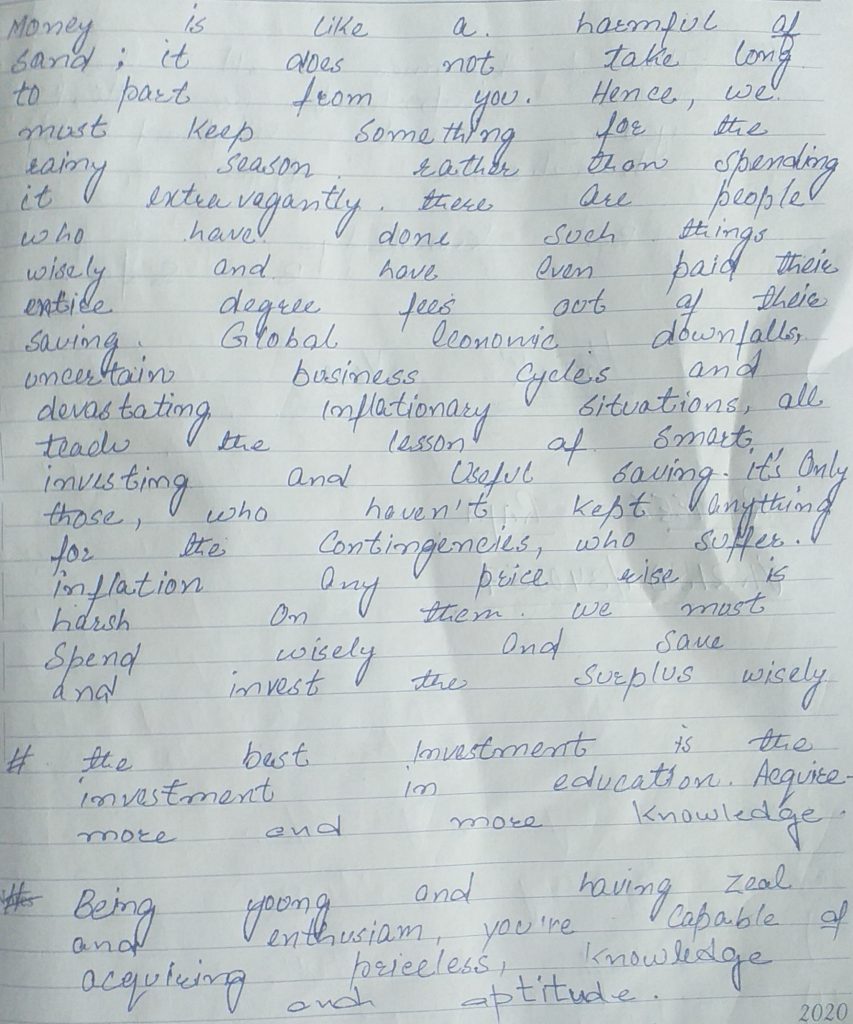 Money is like a. harmful of
sand; it does not take long
to part from you. Hence, we
must keep something for the
rainy season. rather than spending
it extravagantly. there are people
who have done such things
wisely and have even paid their
entire degree fees out of their
saving. Global economic downfalls,
uncertain business cycles and
devastating inflationary situations, all
teach the lesson of smart
investing and Useful saving. it's Only
those, who haven't kept anything
for the Contingencies, who suffer.
inflation Any price rise is
harsh On them. we must
Spend wisely And Save
And invest the Surplus wisely
# the best Investment is the
investment in education. Acquire
more and more knowledge.
Being young and having zeal
and enthusiam, you're Capable of
acquiring priceless, knowledge
and aptitude.
2020